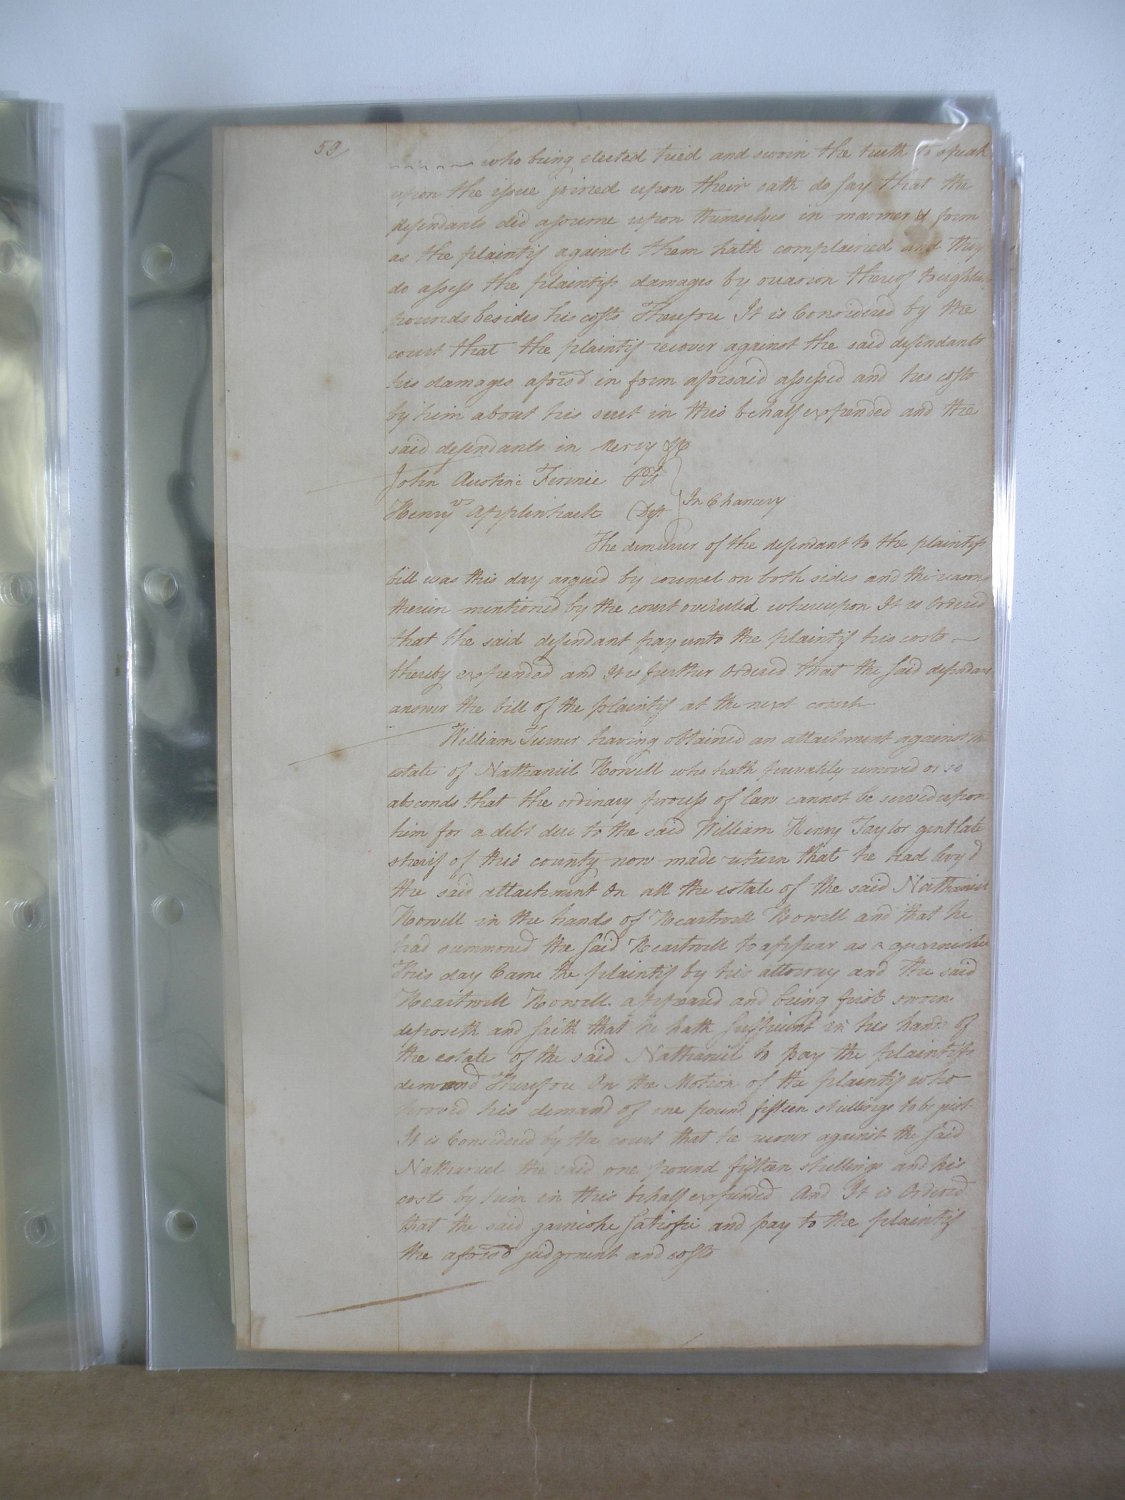 59
who being elected tried and sworn the truth to speak
upon the issue joined upon their oath do say that the
defendants did assume upon themselves in manner & form
as the plaintif against them hath complained and they
do assess the plaintifs damages by occasion thereof to eighteen
pounds besides his costs Therefore It is Considered by the
court that the plaintif recover against the said defendants
his damages aforesd in form aforesaid assessed and his costs
by him about his suit in this behalf expended and the
said defendants in Mercy &c
John Austin Finnie
Henry Applewhaite Deft
In Chancery
The demurrer of the defendant to the plaintifs
bill was this day argued by councel on both sides and the reasons
therein mentioned by the court overruled whereupon It is Ordered
that the said defendant pay unto the plaintif his costs
thereby expended and It is further Ordered that the said defendant
answer the bill of the plaintif at the next court
William Turner having obtained an attachment against the
estate of Nathaniel Howell who hath privately removed or so
absconds that the ordinary process of law cannot be served upon
him for a debt due to the said William Henry Taylor gent late
sherif of this county now made return that he had levy'd
the said attachment on all the estate of the said Nathaniel
Howell in the hands of Heartwell Howell and that he
had summoned the said Heartwell to appear as a guarnishe
This day Came the plaintif by his attorney and the said
Heartwell Howell appeared and being first sworn
deposeth and saith that he hath sufficient in his hands of
the estate of the said Nathaniel to pay the plaintifs
demand Therefore On the Motion of the plaintif who
proved his demand of one pound fifteen shillings to be just
It is Considered by the court that he recover against the said
Nathaniel the said one pound fifteen shillings and his
costs by him in this behalf expended And It is Ordered
that the said garnishe satisfie and pay to the plaintif
the aforesd judgment and costs